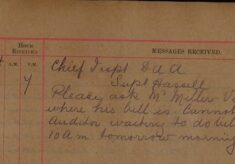 HOUR RECEIVED
MESSAGES RECEIVED.
A.M. P.M.
7
Chief Inspt D.A.A
Supt Hassell
Please ask Mr Miller
where his bill is. Cannot
Auditor waiting to do
10 a.m. tomorrow morning